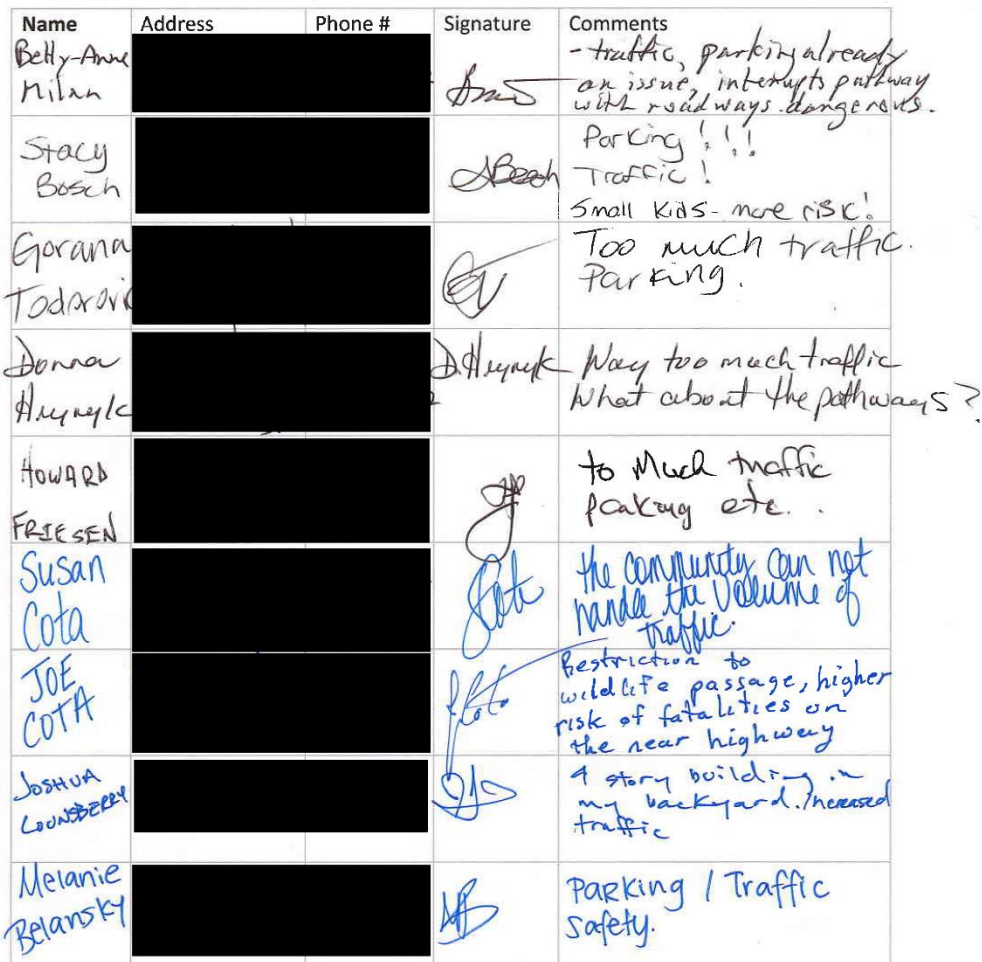 Name Address Phone # Signature Comments
Betty-Anne
Milan
- traffic, parking already
an issue, interrupts pathway
with roadways. dangerous.
Stacy
Bosch
SBosch
Parking !!!
Traffic !
Small Kids - more risk!
Gorana
Todorovic
Too much traffic.
Parking.
Donna
D. Hrynyk
Hrynyk
Way too much traffic
What about the pathways?
HOWARD
FRIESEN
to Much traffic
parking etc..
Susan
Cota
SCota
the community can not
handle the volume of
traffic.
JOE
COTA
J Cota
Restriction to
wildlife passage, higher
risk of fatalities on
the near highway
JOSHUA
LOUNSBERRY
4 story building in
my backyard. Increased
traffic
Melanie
Belansky
MB
Parking / Traffic
Safety.